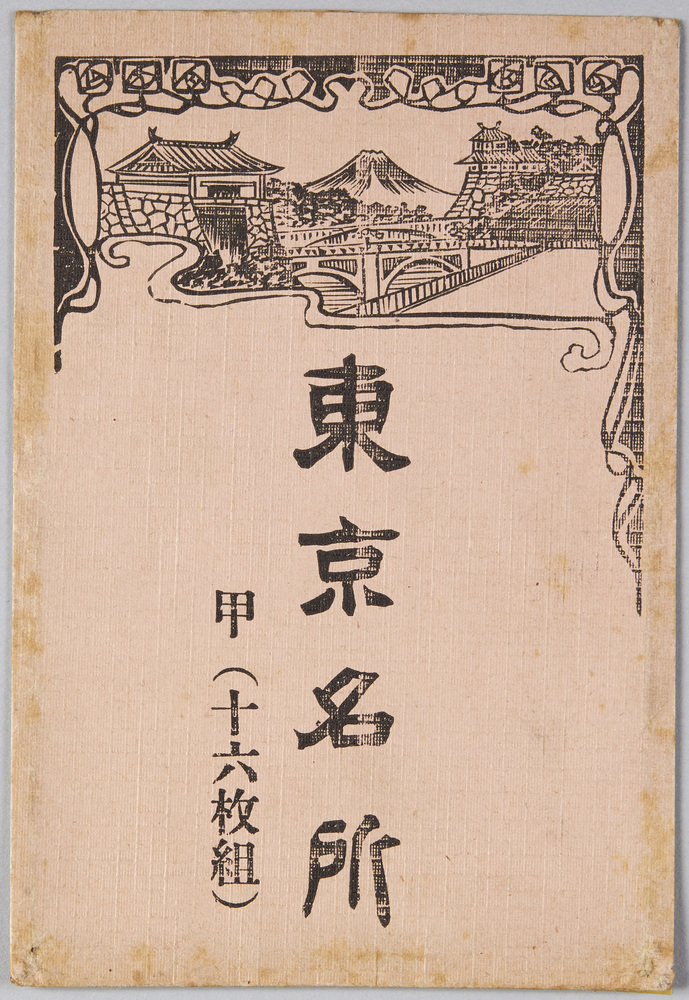 東京名所
甲(十六枚組)